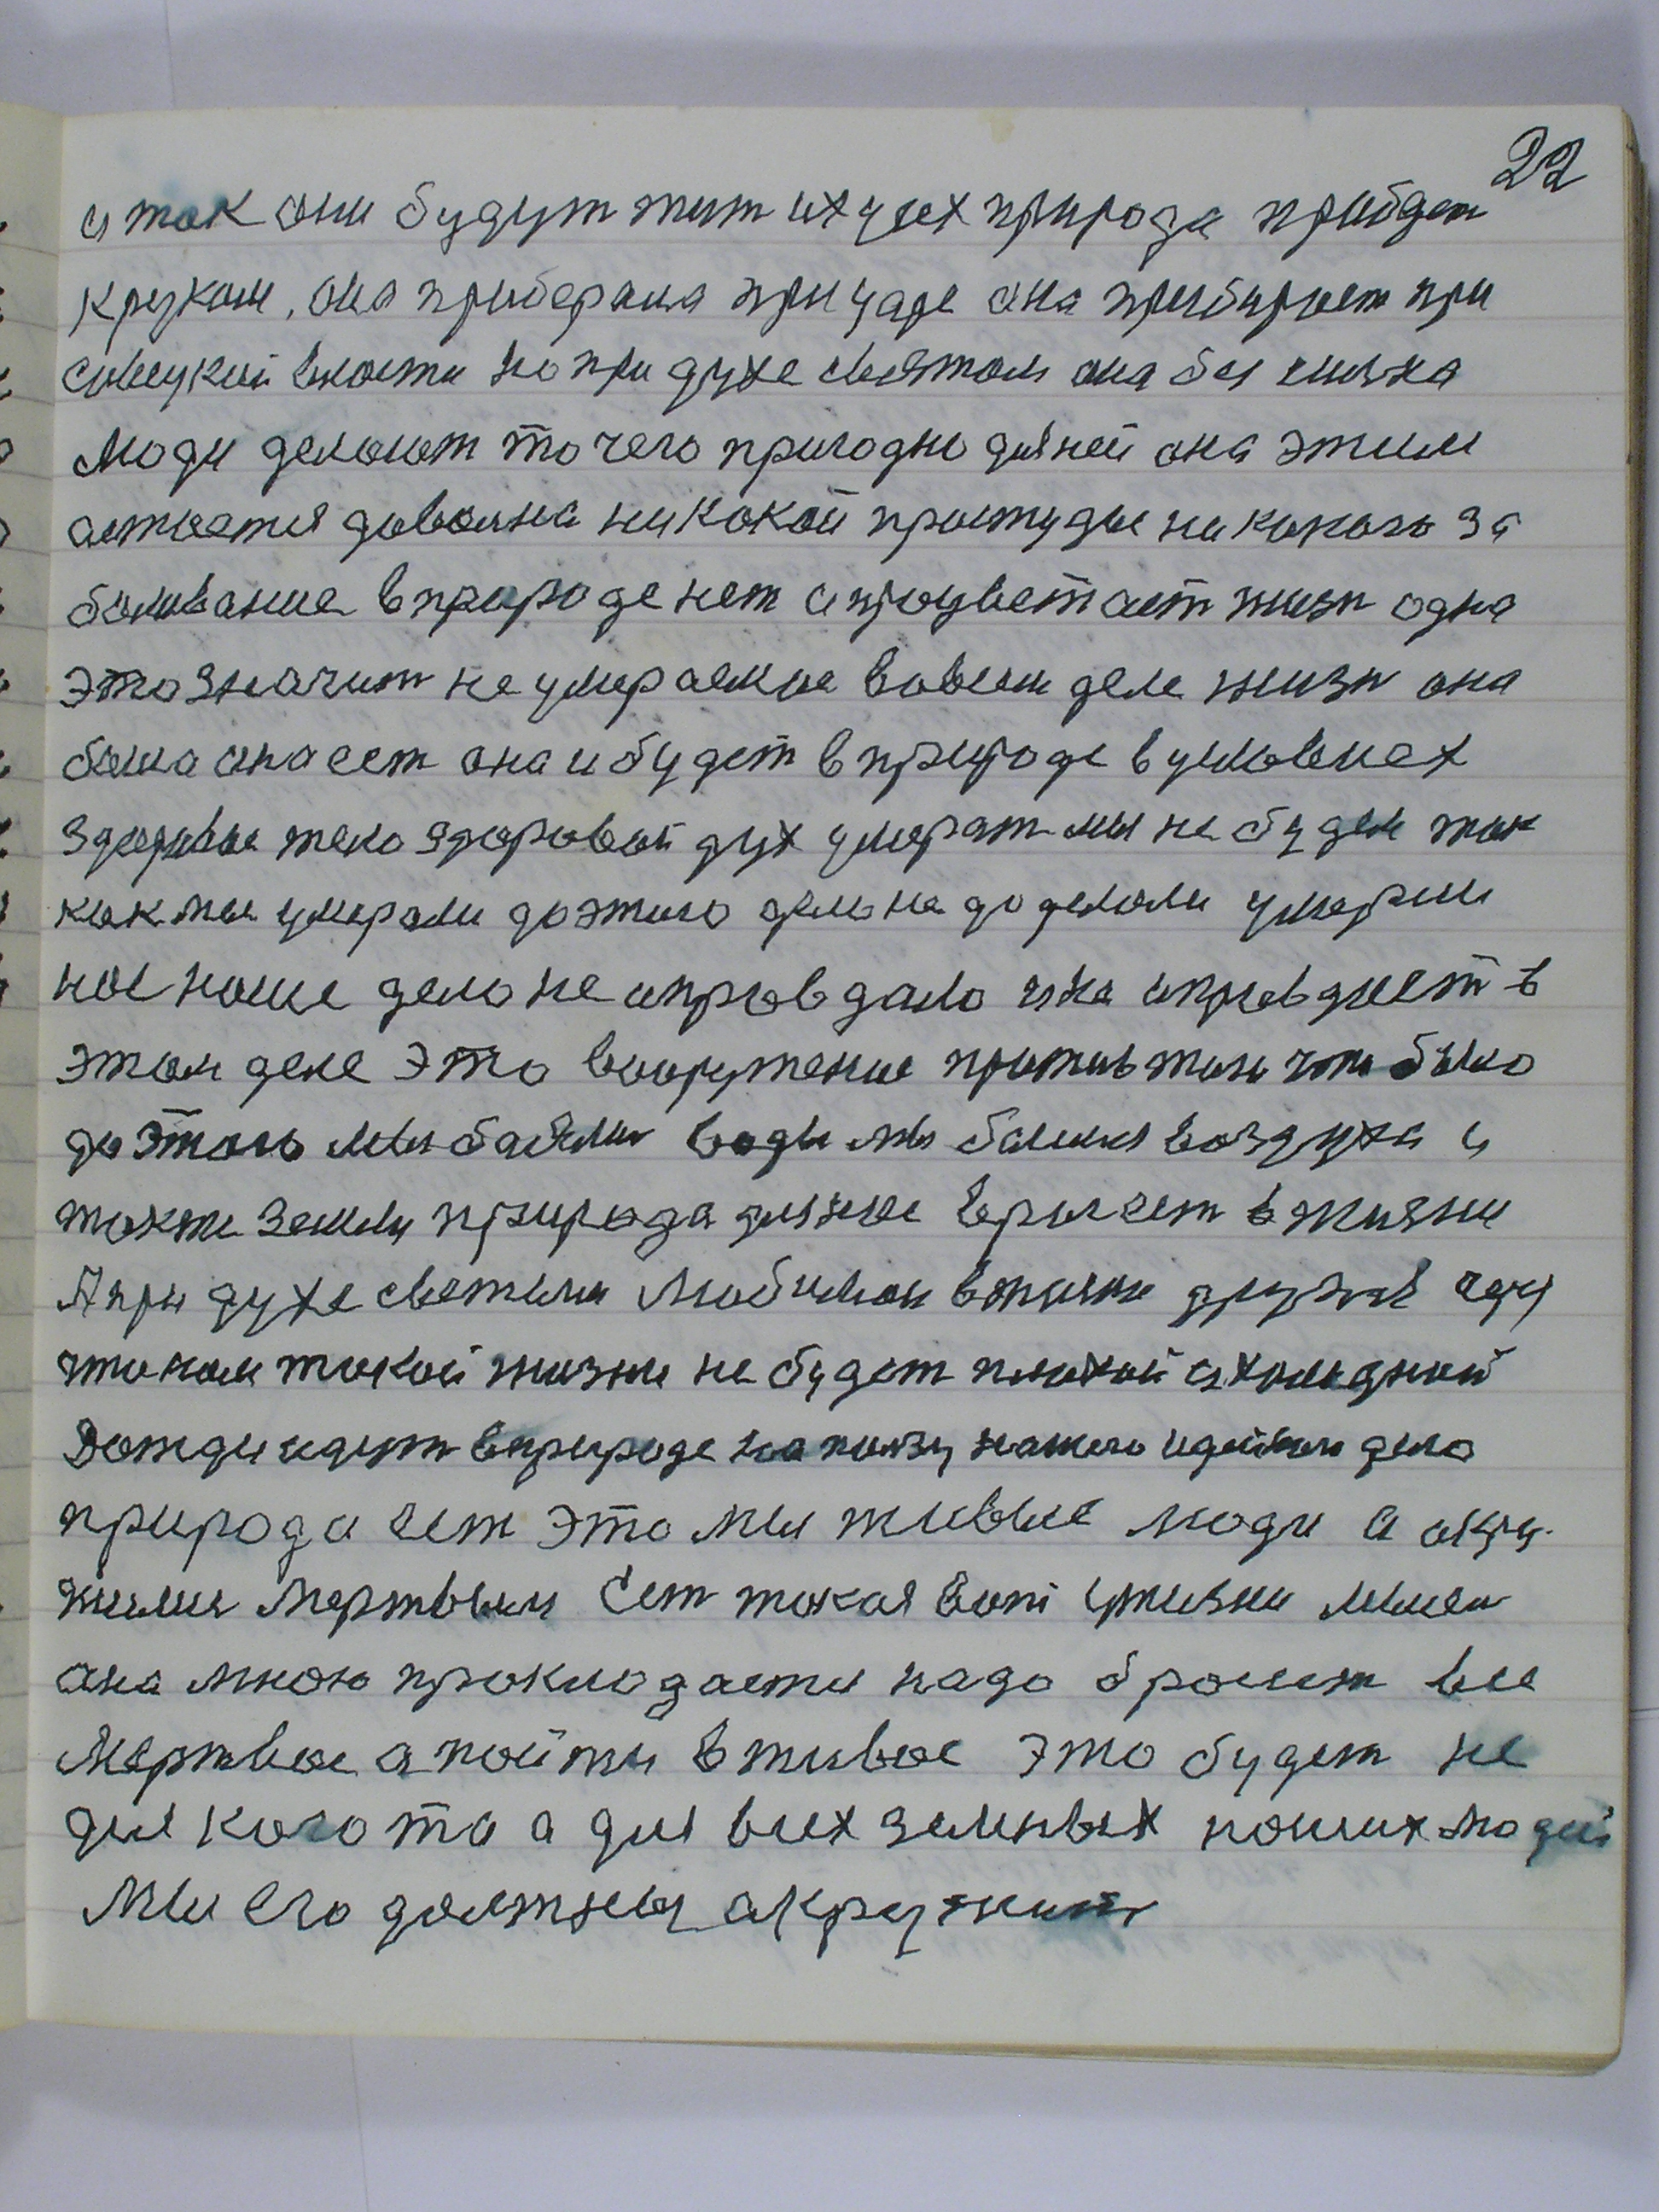 22
и так они будут жит их усех природа прийдет
кругом, она приберала при царе она прибирает при
советской власти но при духе святом она бессилна
Люди делают то чего пригодно для ней она этим
астается давольна никокой простуды никокого за
боливание в природе нет а процветает жизн одна
это значит не умираемое во всем деле жизн она
была ана ест она и будет в природе в условиях
Здоровое тело здоровый дух умерат мы не будем так
как мы умерали до этого дело не доделали умерли
нас наше дело не оправдало и не оправдает в
этом деле это вооружение против того что было
до этого мы боялис воды мы боялис воздуха и
также земли природа для нас враг ест в жизни
А при духе святым Любимои в жизни друзья
что нам такой жизни не будет плохой и холодной
Дожди идут в природе на ползу нашего идейного дела
природа ест это мы живые люди а окру
жились мертвым Ест такая вот у жизни мысль
ана мною прокладаетца надо бросит все
Мертвое а пойти в живое это будет не
для кого то а для всех земных наших людей
Мы его должны акружит